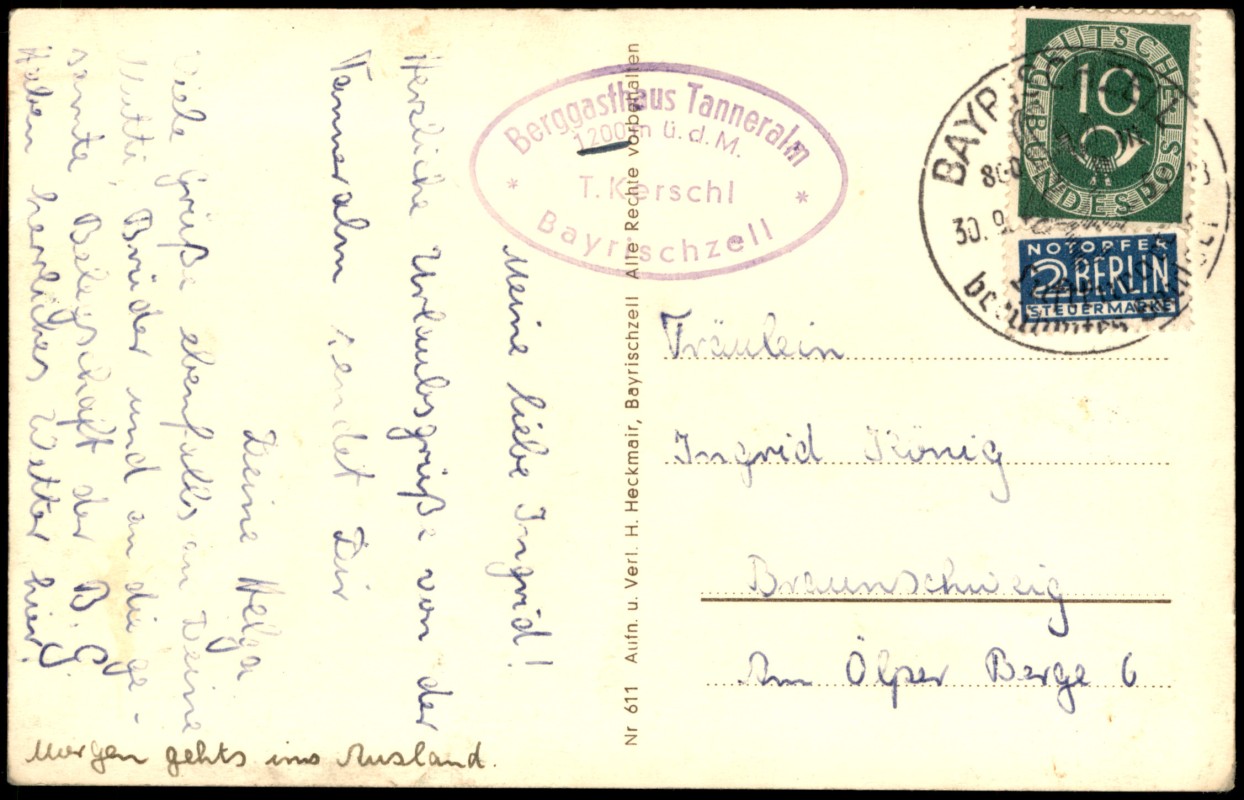 Meine liebe Ingrid!
Herzliche Urlaubsgrüße von der
Tanneralm sendet Dir
Deine Helga
Viele Grüße ebenfalls an Deine
Mutti, Brüder und an die ge-
samte Belegschaft der B. G.
Haben herrliches Wetter hier!
Morgen gehts ins Ausland.
Berggasthaus Tanneralm
1200 m ü. d. M.
* T. Kerschl *
Bayrischzell
Nr 611 Aufn. u. Verl. H. Heckmair, Bayrischzell Alle Rechte vorbehalten
DEUTSCHE BUNDESPOST
10
NOTOPFER
2 BERLIN
STEUERMARKE
BAYRISCHZELL
30. 9.
Fräulein
Ingrid König
Braunschweig
Am Ölper Berge 6